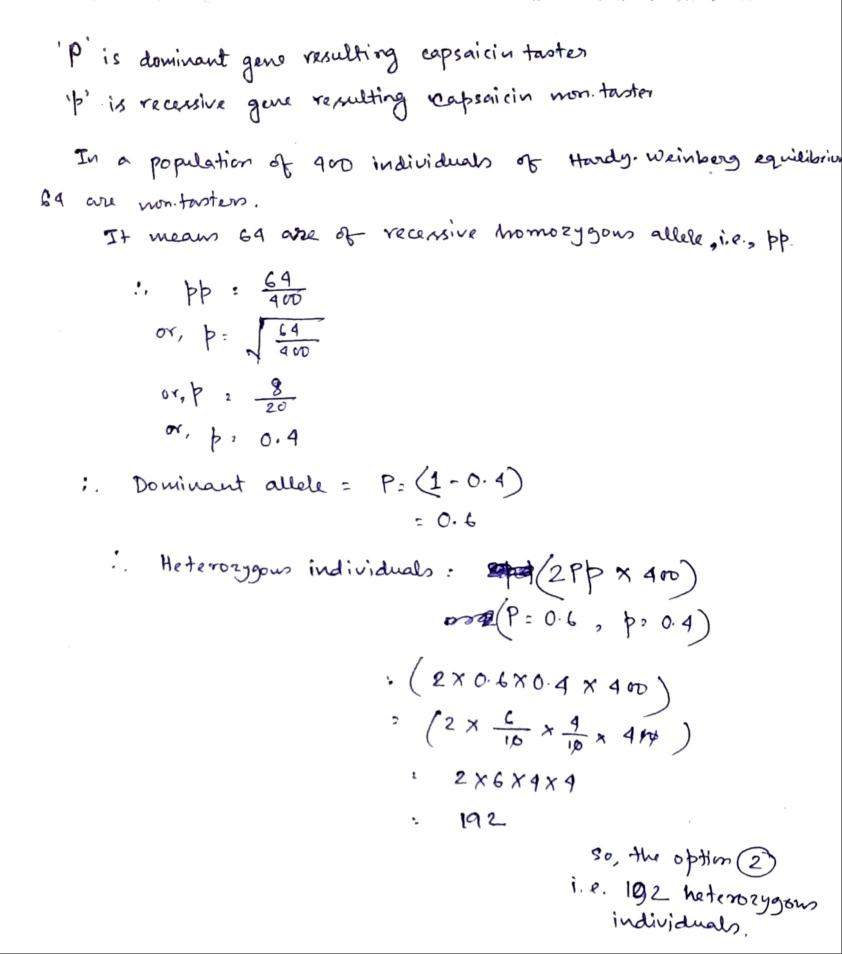 'P' is dominant gene resulting capsaicin taster
'p' is recessive gene resulting capsaicin non.taster
In a population of 400 individuals of Hardy-Weinberg equilibriu
64 are non.tasters.
It means 64 are of recessive homozygous allele, i.e., pp.
∴ pp = 64/400
or, p = √64/400
or, p = 8/20
or, p = 0.4
∴ Dominant allele = P = (1 - 0.4)
= 0.6
∴ Heterozygous individuals = (2Pp × 400)
(P = 0.6, p = 0.4)
= (2 × 0.6 × 0.4 × 400)
= (2 × 6/10 × 4/10 × 400)
= 2 × 6 × 4 × 4
= 192
So, the option 2
i.e. 192 heterozygous
individuals.